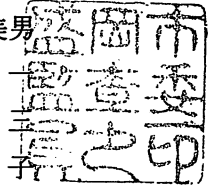 美男
一
二
子
盛岡市
監査委
員之印